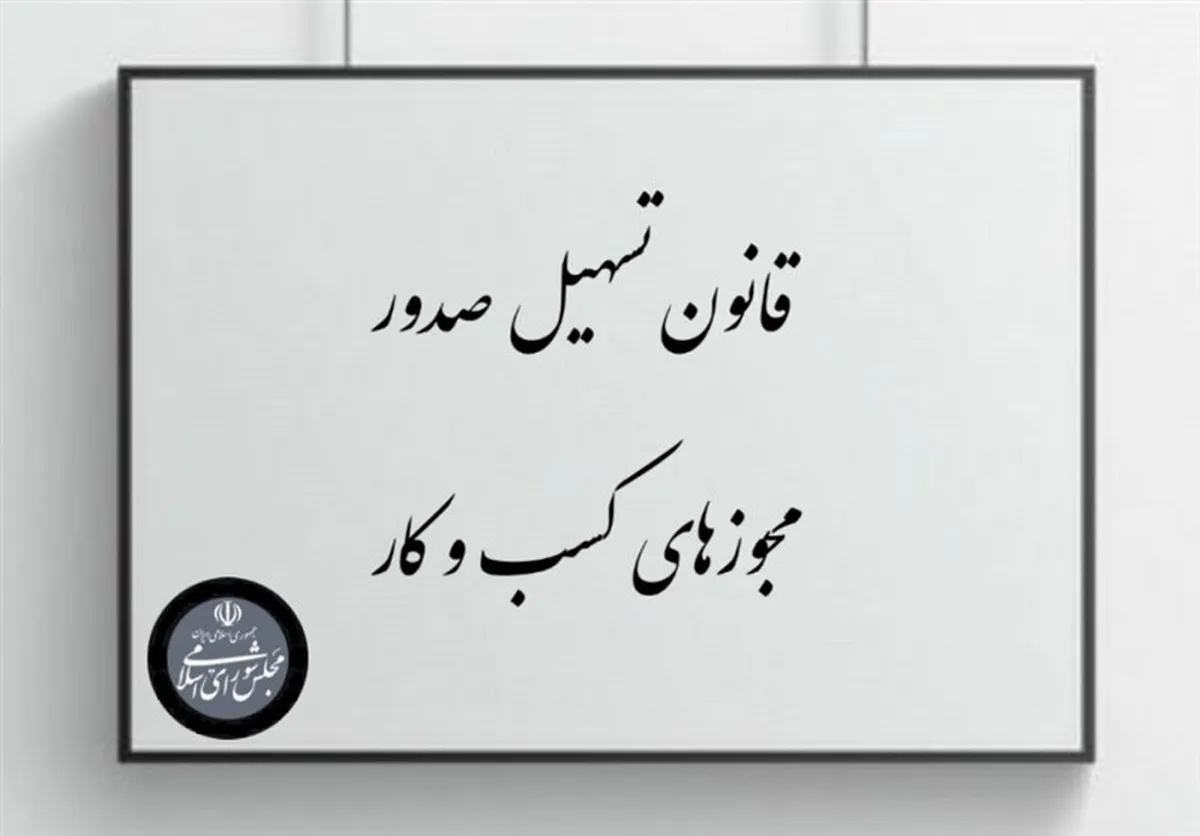 قانون تسهیل صدور
مجوزهای کسب و کار
جمهوری اسلامی ایران
مجلس شورای اسلامی